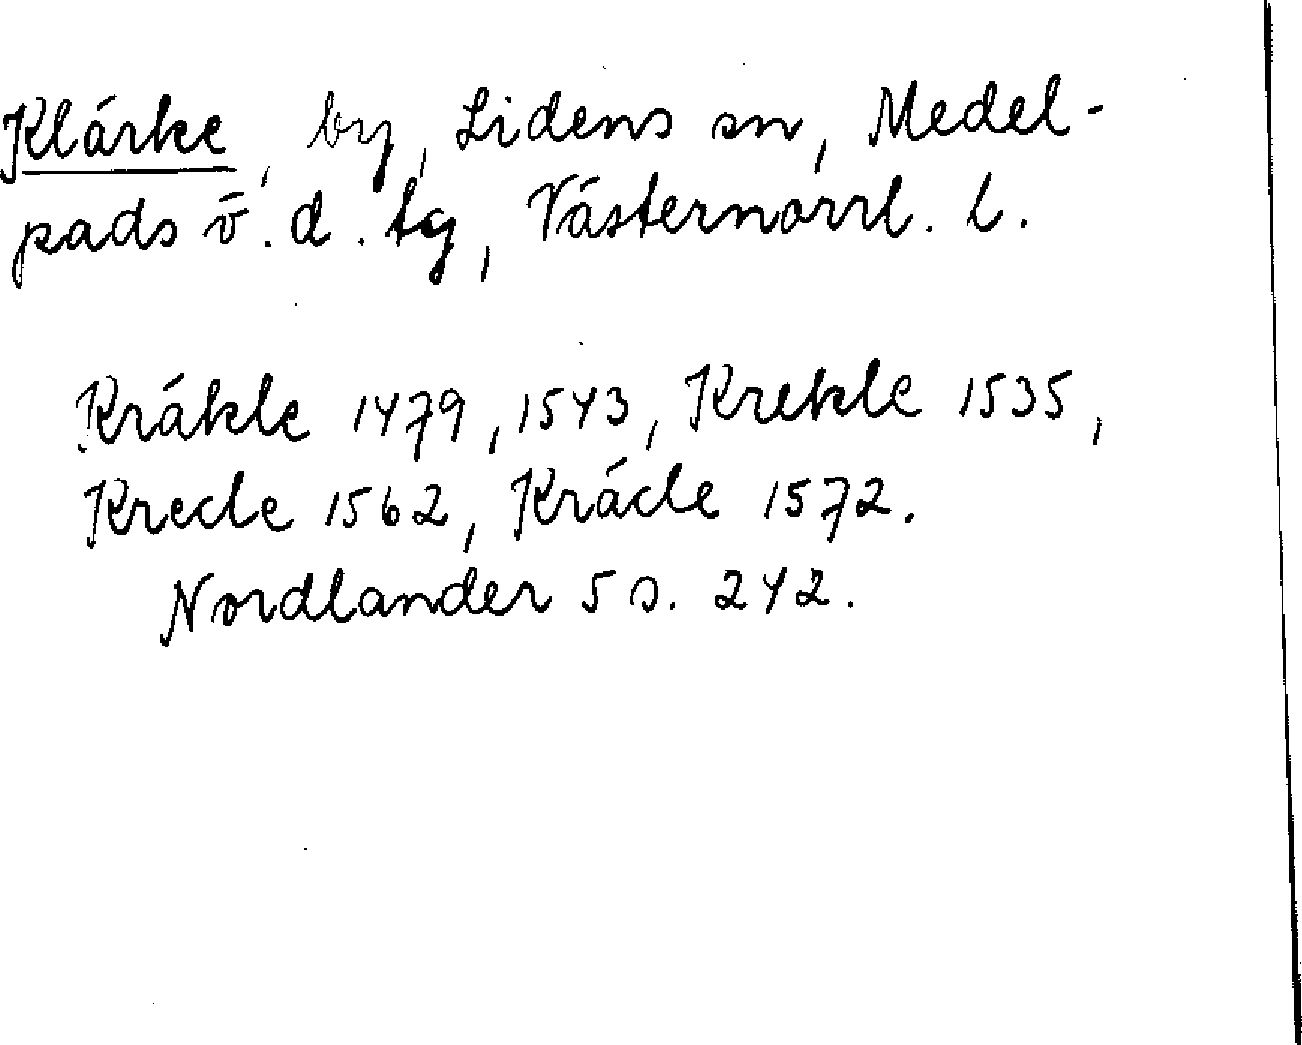 Klärke, by, Lidens sn, Medel-
pads v. d. tg, Västernorrl. l.
Kräkle 1479, 1543, Krekle 1535,
Krecle 1562, Kräcle 1572.
Nordlander 5 s. 242.